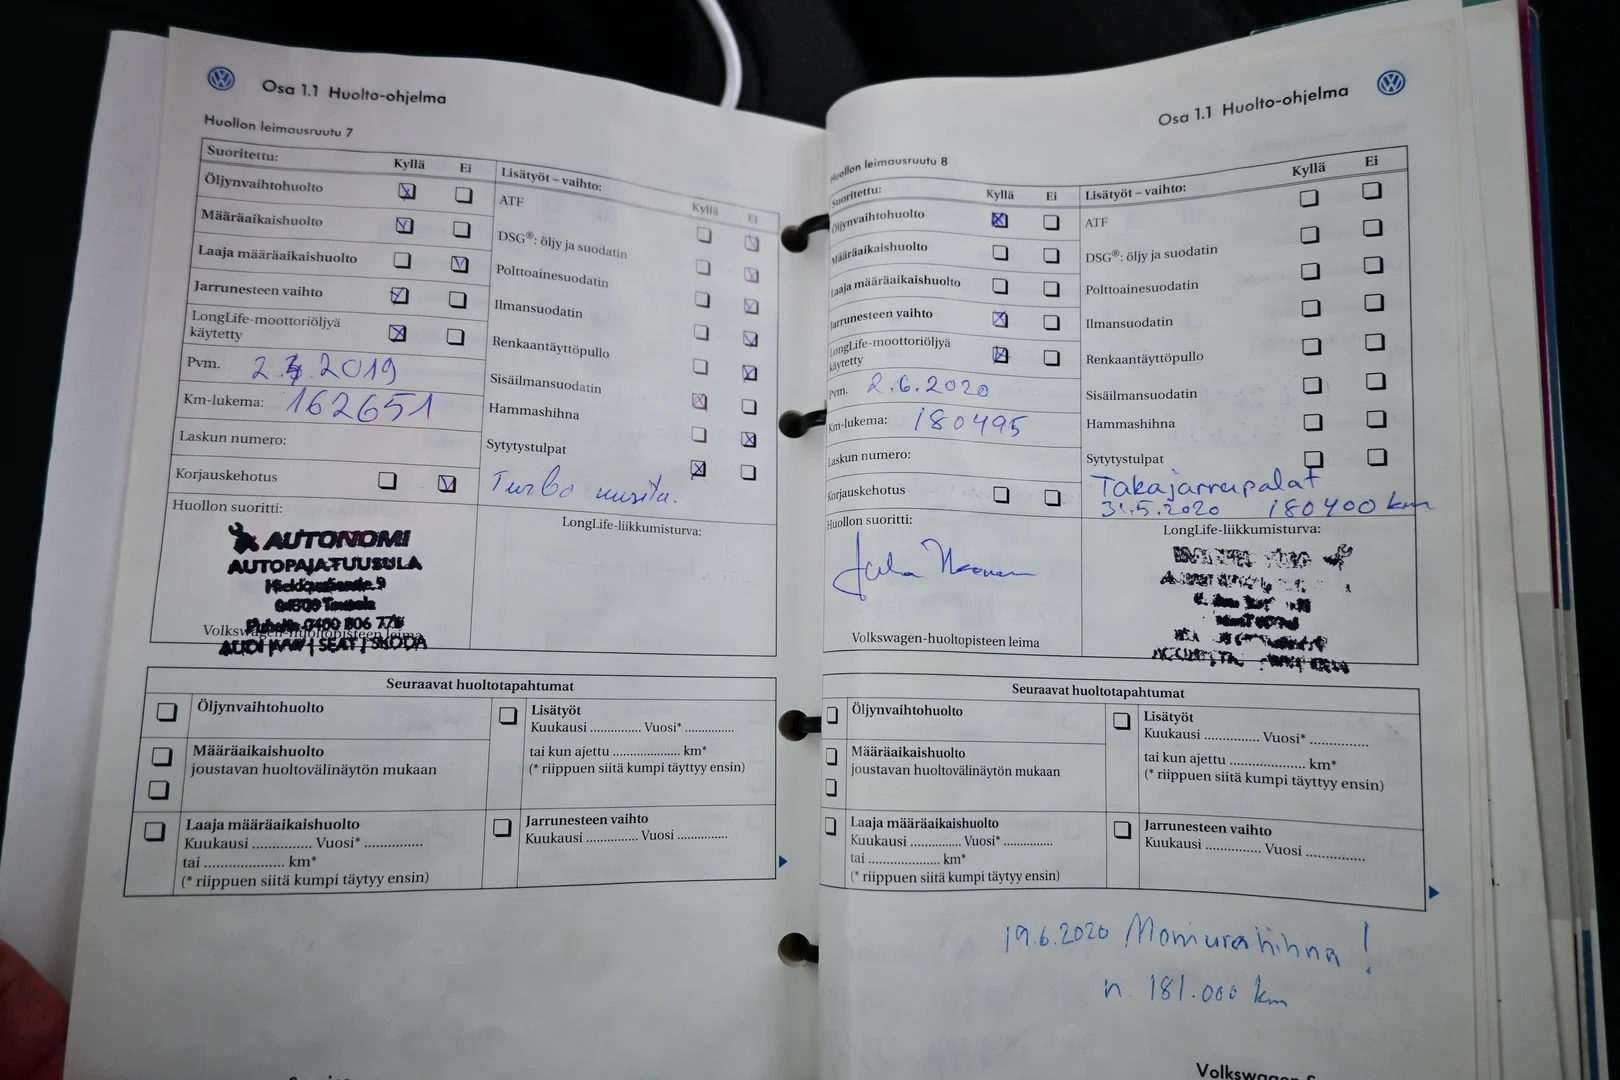 Osa 1.1 Huolto-ohjelma
Huollon leimausruutu 7
Suoritettu: Kyllä Ei
Öljynvaihtohuolto
Määräaikaishuolto
Laaja määräaikaishuolto
Jarrunesteen vaihto
LongLife-moottoriöljyä
käytetty
Pvm. 2.4.2019
Km-lukema: 162651
Laskun numero:
Korjauskehotus
Huollon suoritti:
AUTONOMI
AUTOPAJA-TUUSULA
04300 Tuusula
Volkswagen-huoltopisteen leima
AUDI | VW | SEAT | SKODA
Lisätyöt – vaihto: Kyllä Ei
ATF
DSG®: öljy ja suodatin
Polttoainesuodatin
Ilmansuodatin
Renkaantäyttöpullo
Sisäilmansuodatin
Hammashihna
Sytytystulpat
Turbo uusittu.
LongLife-liikkumisturva:
Seuraavat huoltotapahtumat
Öljynvaihtohuolto
Määräaikaishuolto
joustavan huoltovälinäytön mukaan
Laaja määräaikaishuolto
Kuukausi .............. Vuosi* ..............
tai .................... km*
(* riippuen siitä kumpi täytyy ensin)
Lisätyöt
Kuukausi ............. Vuosi* .............
tai kun ajettu ................. km*
(* riippuen siitä kumpi täyttyy ensin)
Jarrunesteen vaihto
Kuukausi ............. Vuosi .............
Osa 1.1 Huolto-ohjelma
Huollon leimausruutu 8
Suoritettu: Kyllä Ei
Öljynvaihtohuolto
Määräaikaishuolto
Laaja määräaikaishuolto
Jarrunesteen vaihto
LongLife-moottoriöljyä
käytetty
Pvm. 2.6.2020
Km-lukema: 180495
Laskun numero:
Korjauskehotus
Huollon suoritti:
Volkswagen-huoltopisteen leima
Lisätyöt – vaihto: Kyllä Ei
ATF
DSG®: öljy ja suodatin
Polttoainesuodatin
Ilmansuodatin
Renkaantäyttöpullo
Sisäilmansuodatin
Hammashihna
Sytytystulpat
Takajarrupalat
31.5.2020 180400 km
LongLife-liikkumisturva:
Seuraavat huoltotapahtumat
Öljynvaihtohuolto
Määräaikaishuolto
joustavan huoltovälinäytön mukaan
Laaja määräaikaishuolto
Kuukausi ............. Vuosi* .............
tai .................... km*
(* riippuen siitä kumpi täytyy ensin)
Lisätyöt
Kuukausi .............. Vuosi* ..............
tai kun ajettu .................. km*
(* riippuen siitä kumpi täyttyy ensin)
Jarrunesteen vaihto
Kuukausi .............. Vuosi ..............
19.6.2020 Moniurahihna !
n. 181.000 km